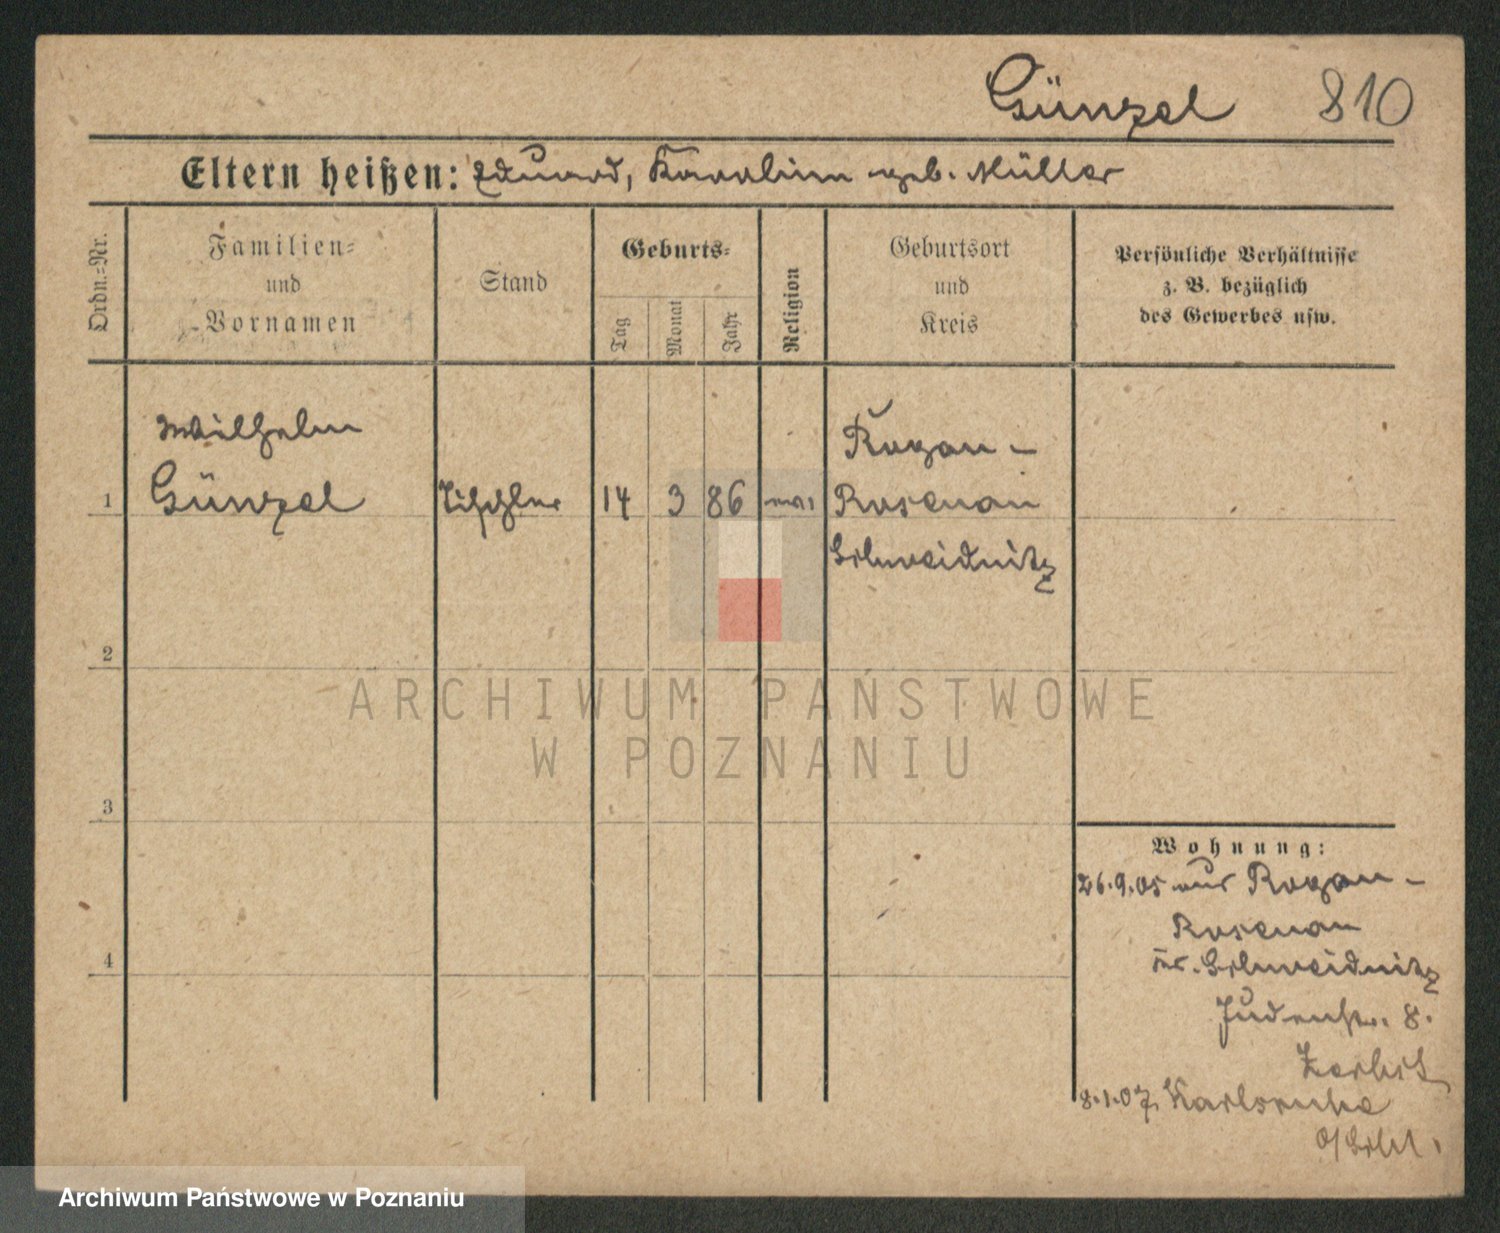 Günzel 810
Eltern heißen: Eduard, Karoline geb. Müller
Ordn.-Nr.
Familien-
und
Vornamen
Stand
Geburts-
Tag
Monat
Jahr
Religion
Geburtsort
und
Kreis
Persönliche Verhältnisse
z. B. bezüglich
des Gewerbes usw.
Wilhelm
1 Günzel Tischler 14 3 86
Rogau -
Rosenau
Schweidnitz
2
3
4
ARCHIWUM PAŃSTWOWE
W POZNANIU
Wohnung:
26.9.05 aus Rogau -
Rosenau
Kr. Schweidnitz
Judenstr. 8.
Zerbst
8.1.07. Karlsruhe
O/Schl.
Archiwum Państwowe w Poznaniu